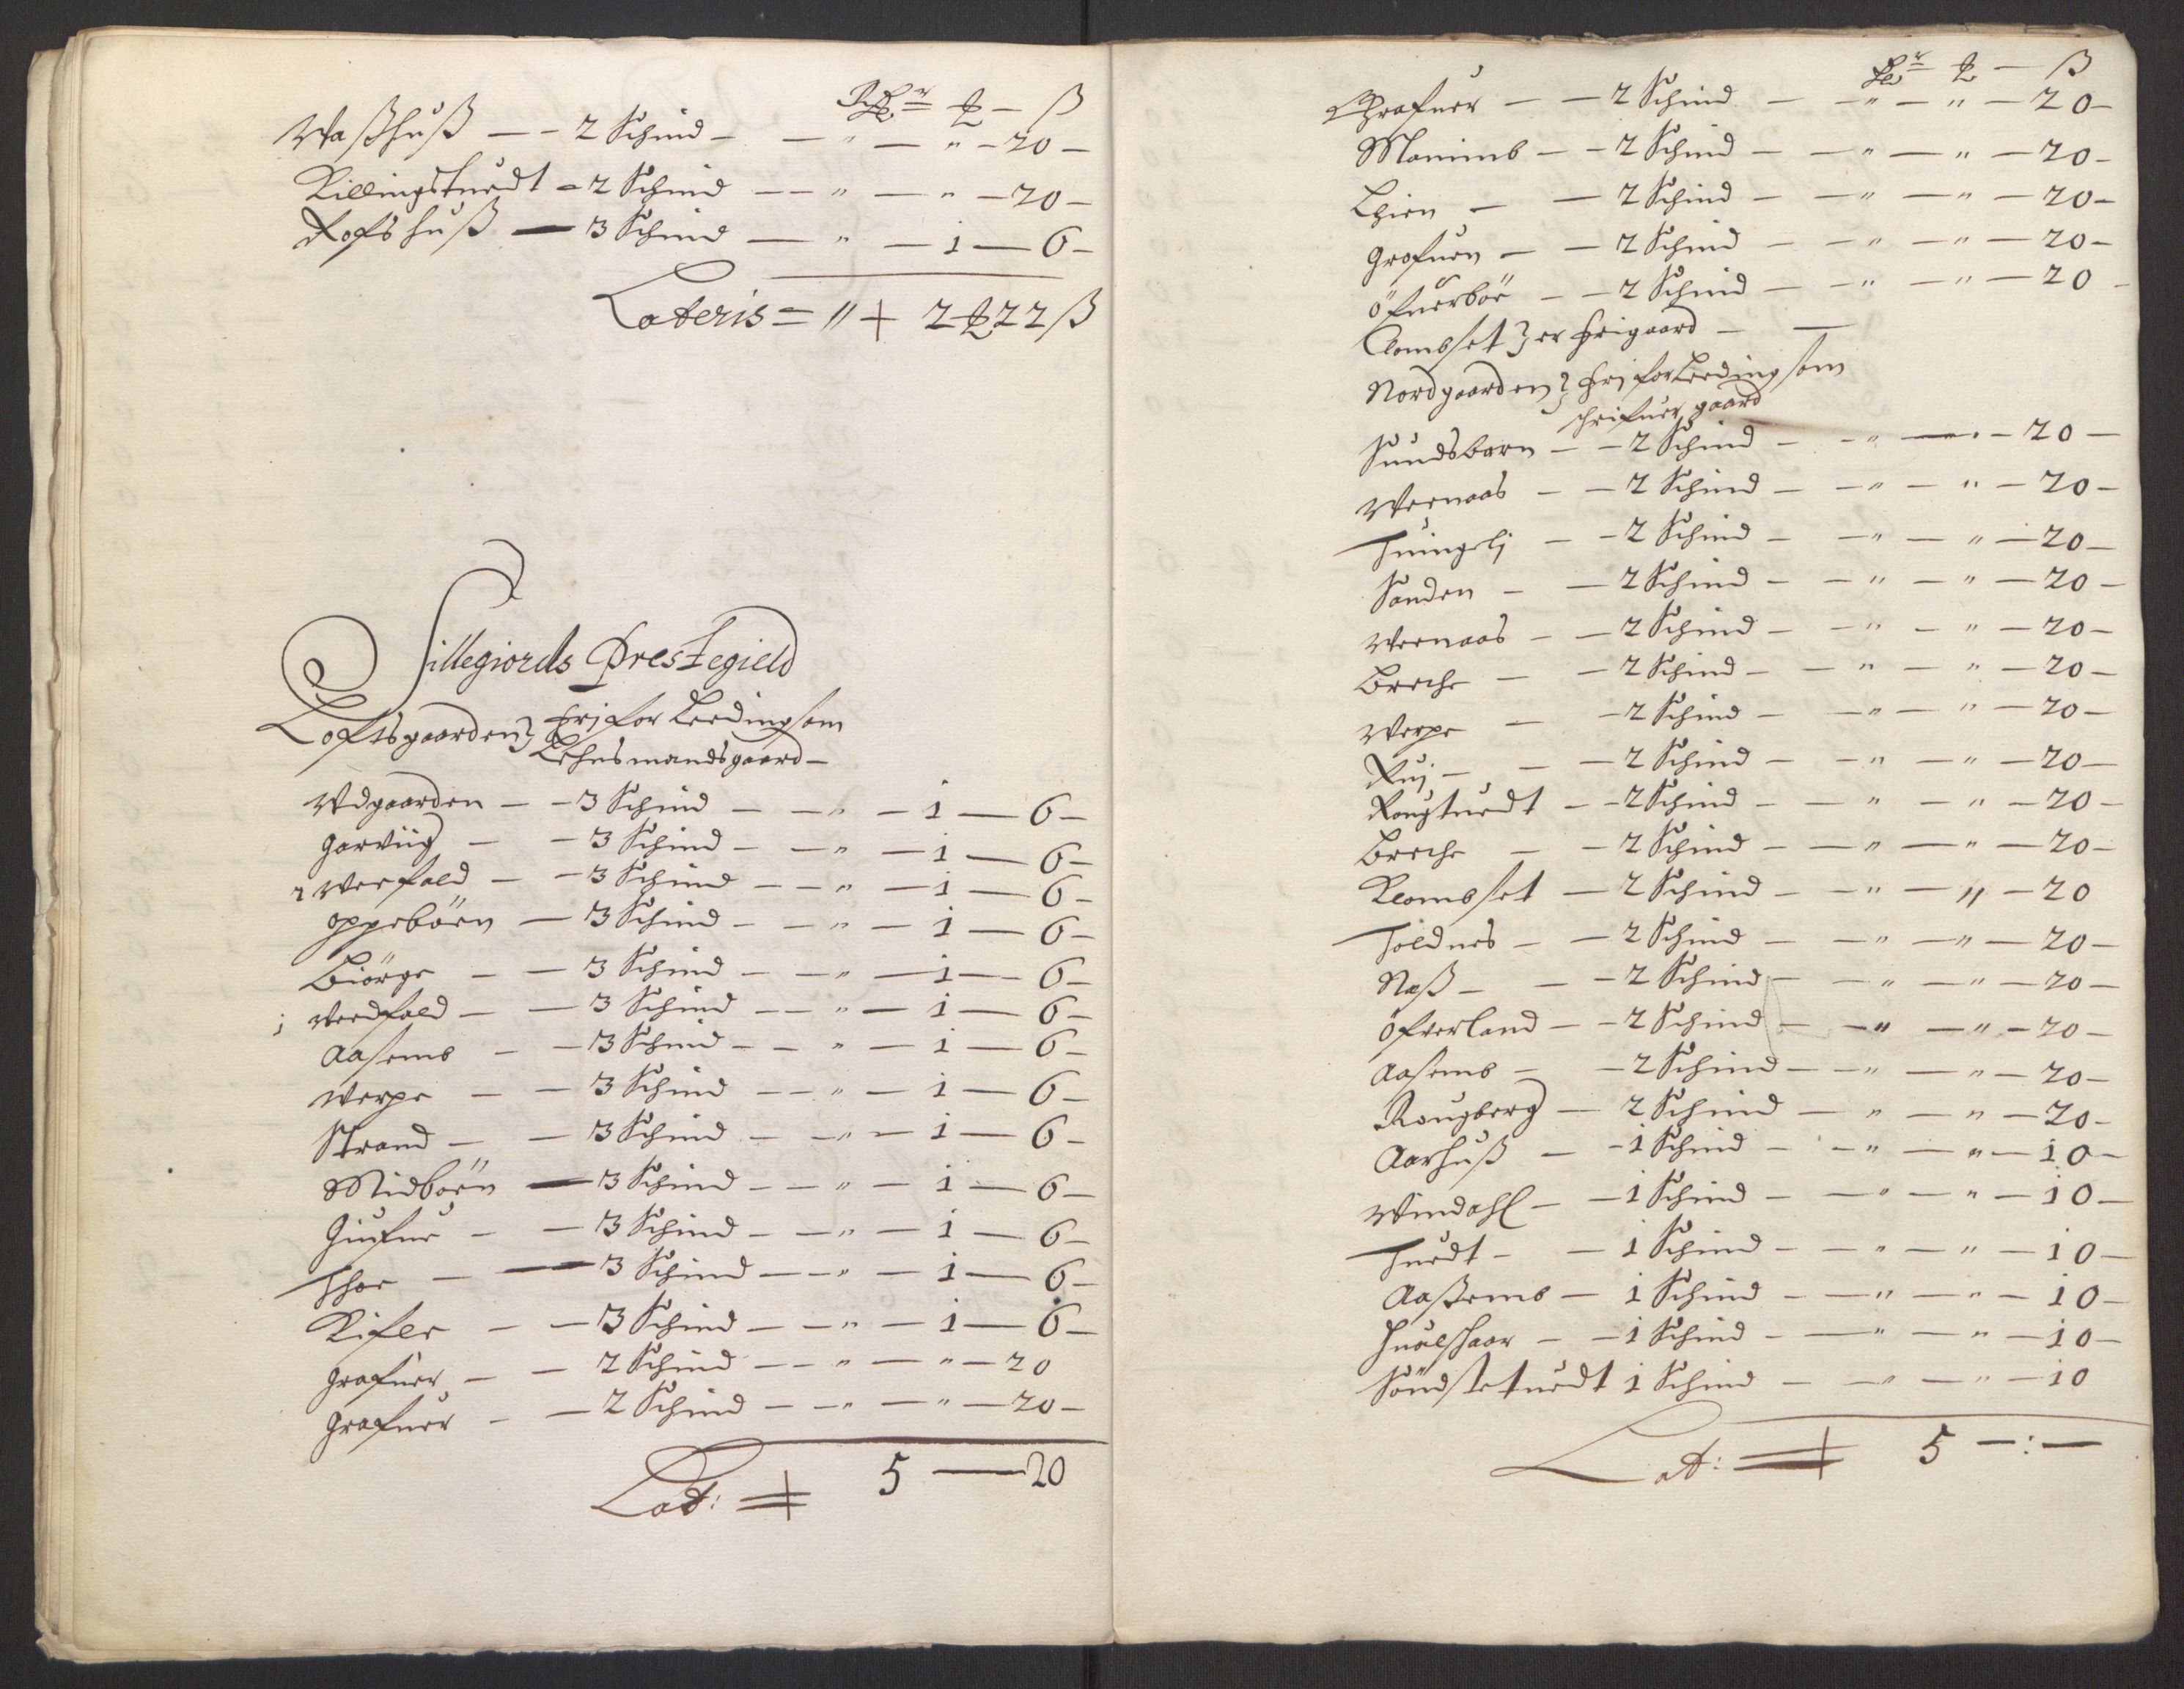 Rdr — ß
Waßhuß — — 2 Schind — — " — " — 20 —
Killingstuedt — 2 Schind — — " — " — 20 —
Rofshuß — 3 Schind — " — 1 — 6 —
Lateris = " + 2 22 ß
Sillegiords Prestegield
Loftsgaarden } frj for Leeding som
Lehnsmandsgaard —
Udgaarden — — 3 Schind — — " — 1 — 6 —
Garviig — — 3 Schind — — " — 1 — 6 —
2 Werfald — — 3 Schind — — " — 1 — 6 —
Oppeböen — 3 Schind — — " — 1 — 6 —
Biörge — — 3 Schind — — " — 1 — 6 —
j Werdfald — — 3 Schind — — " — 1 — 6 —
Aasemb — — 3 Schind — — " — 1 — 6 —
Werpe — — 3 Schind — — " — 1 — 6 —
Strand — — 3 Schind — — " — 1 — 6 —
Midböen — 3 Schind — — " — 1 — 6 —
Giufue — — 3 Schind — — " — 1 — 6 —
Thoe — — 3 Schind — — " — 1 — 6 —
Kifle — — 3 Schind — — " — 1 — 6 —
Grafuer — — 2 Schind — — " — " — 20
Grafuer — — 2 Schind — — " — " — 20 —
Lat: 5 — 20
Rdr — ß
Grafuer — — 2 Schind — — " — " — 20 —
Manimb — — 2 Schind — — " — " — 20 —
Lhien — — 2 Schind — — " — " — 20 —
Grofuen — — 2 Schind — — " — " — 20 —
Öfuerböe — — 2 Schind — — " — " — 20 —
Clombset } er frigaard — —
Nordgaarden } frj for Leeding som
schrifuer gaard
Sundsbarn — — 2 Schind — — " — " — 20 —
Wernaas — — 2 Schind — — " — " — 20 —
Huingelj — — 2 Schind — — " — " — 20 —
Sanden — — 2 Schind — — " — " — 20 —
Wernaas — — 2 Schind — — " — " — 20 —
Breche — — 2 Schind — — " — " — 20 —
Werpe — — 2 Schind — — " — " — 20 —
Ruj — — — 2 Schind — — " — " — 20 —
Rougtuedt — — 2 Schind — — " — " — 20 —
Breche — — 2 Schind — — " — " — 20 —
Klombset — 2 Schind — — " — " — 20
Töldnes — — 2 Schind — — " — " — 20 —
Neß — — — 2 Schind — — " — " — 20 —
Öfverland — — 2 Schind — — " — " — 20 —
Aasemb — — 2 Schind — — " — " — 20 —
Rougberg — 2 Schind — " — " — 20 —
Aarhuß — — 1 Schind — — " — " — 10 —
Windahl — — 1 Schind — — " — " — 10 —
Tuedt — — 1 Schind — — " — " — 10 —
Aaßemb — 1 Schind — — " — " — 10 —
Hualshaar — — 1 Schind — — " — " — 10 —
Söndstetuedt 1 Schind — — " — " — 10
Lat: 5 — : —